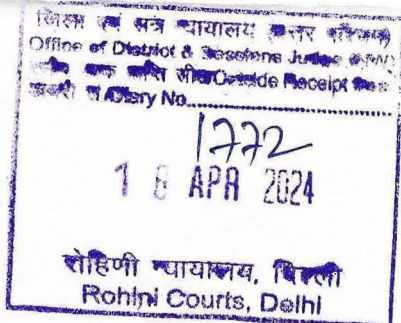 जिला एवं सत्र न्यायालय
Office of District & Sessions Judge (NW)
Outside Receipt
Diary No..................
1772
1 8 APR 2024
रोहिणी न्यायालय, दिल्ली
Rohini Courts, Delhi